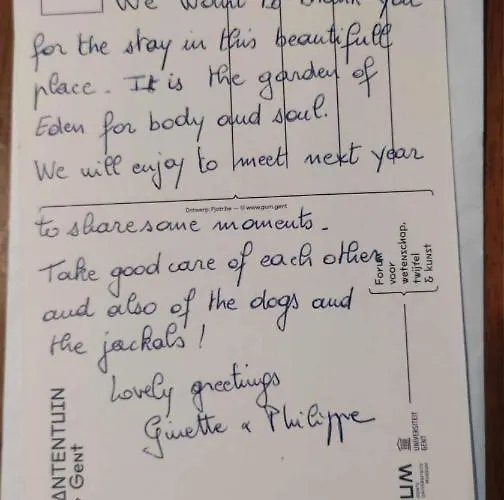 We want to thank you
for the stay in this beautifull
place. It is the garden of
Eden for body and soul.
We will enjoy to meet next year
Ontwerp: Pjotr.be — © www.gum.gent
to share some moments.
Take good care of each other
and also of the dogs and
the jackals!
Lovely greetings
Ginette & Philippe
Forum
voor
wetenschap,
twijfel
& kunst
ANTENTUIN
Gent
UM
UNIVERSITEIT
GENT